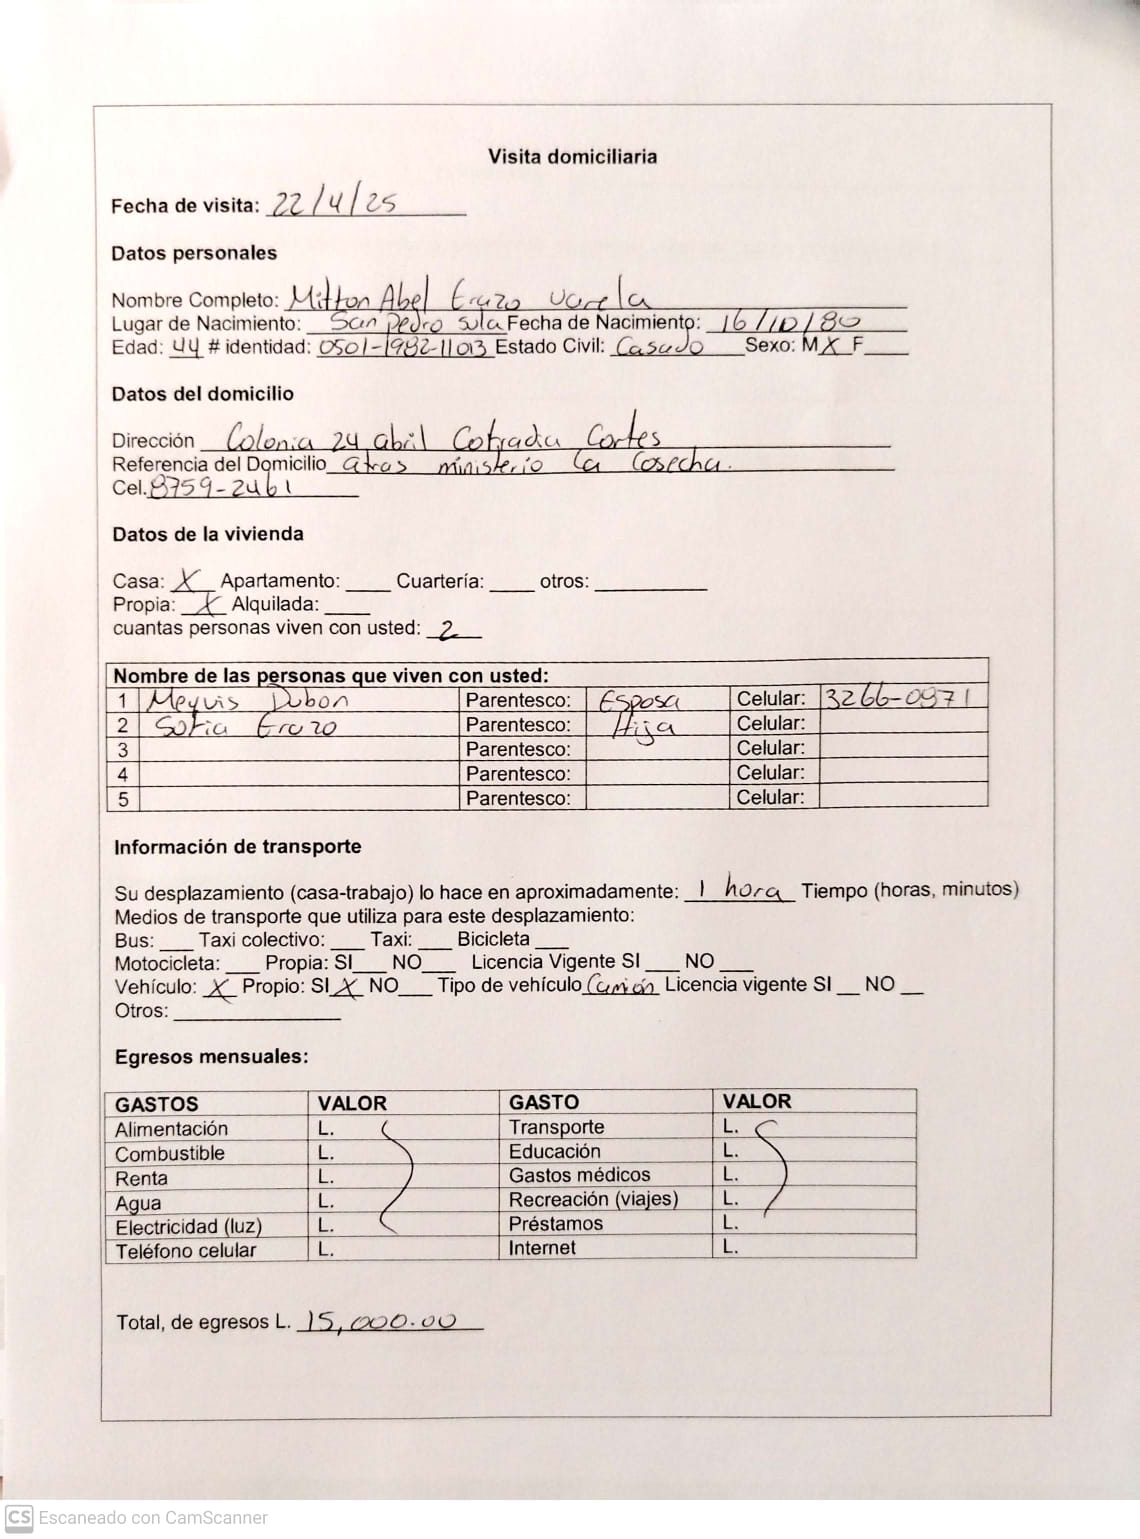 Visita domiciliaria
Fecha de visita: 22/4/25
Datos personales
Nombre Completo: Milton Abel Erazo Varela
Lugar de Nacimiento: San Pedro Sula Fecha de Nacimiento: 16/10/80
Edad: 44 # identidad: 0501-1982-11013 Estado Civil: Casado Sexo: M X F ____
Datos del domicilio
Dirección Colonia 24 abril Cofradia Cortes
Referencia del Domicilio atras ministerio la Cosecha.
Cel. 8759-2461
Datos de la vivienda
Casa: X Apartamento: ____ Cuartería: ____ otros: ____
Propia: X Alquilada: ____
cuantas personas viven con usted: 2
Nombre de las personas que viven con usted:
1 Meyvis Dubon Parentesco: Esposa Celular: 3266-0971
2 Sofia Erazo Parentesco: Hija Celular:
3 Parentesco: Celular:
4 Parentesco: Celular:
5 Parentesco: Celular:
Información de transporte
Su desplazamiento (casa-trabajo) lo hace en aproximadamente: 1 hora Tiempo (horas, minutos)
Medios de transporte que utiliza para este desplazamiento:
Bus: ___ Taxi colectivo: ___ Taxi: ___ Bicicleta ___
Motocicleta: ___ Propia: SI___ NO___ Licencia Vigente SI ___ NO ___
Vehículo: X Propio: SI X NO___ Tipo de vehículo Camión Licencia vigente SI __ NO __
Otros: ____
Egresos mensuales:
GASTOS VALOR GASTO VALOR
Alimentación L. Transporte L.
Combustible L. Educación L.
Renta L. Gastos médicos L.
Agua L. Recreación (viajes) L.
Electricidad (luz) L. Préstamos L.
Teléfono celular L. Internet L.
Total, de egresos L. 15,000.00
CS Escaneado con CamScanner